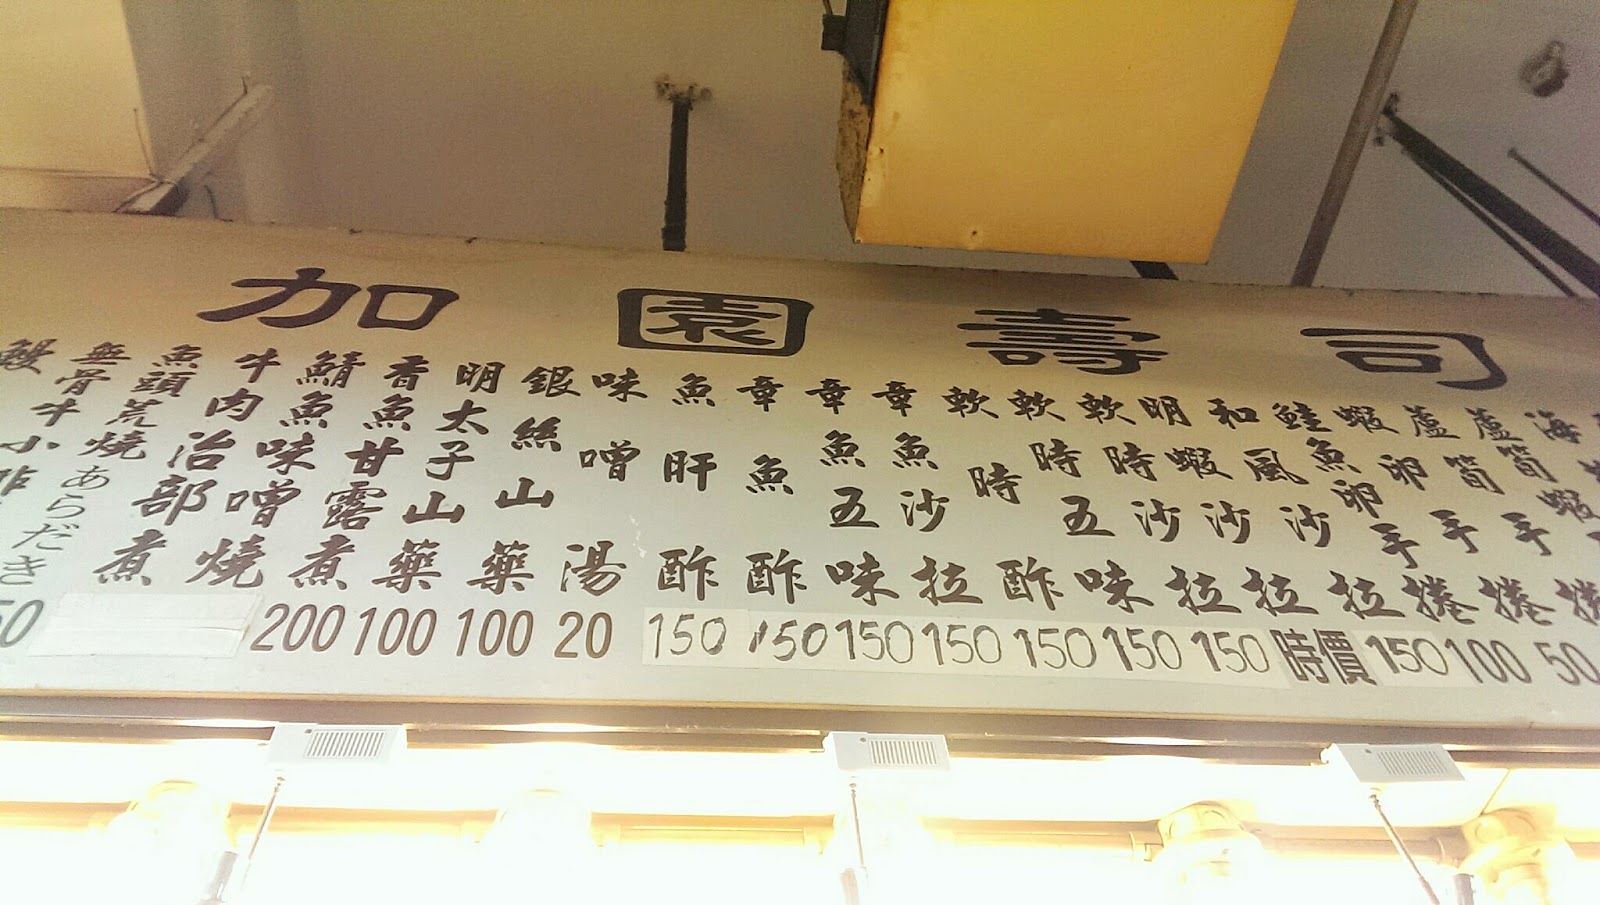 加園壽司
鮭魚卵手捲
蝦卵手捲
蘆筍手捲
和風沙拉
明蝦沙拉
軟時沙拉
軟時五味
軟時酢
章魚沙拉
章魚五味
章魚酢
魚肝酢
味噌湯
銀絲山藥
明太子山藥
香魚甘露煮
鯖魚味噌燒
牛肉治部煮
魚頭荒燒あらだき
無骨牛小排
鰻
200 100 100 20 150 150 150 150 150 150 150 時價 150 100 50